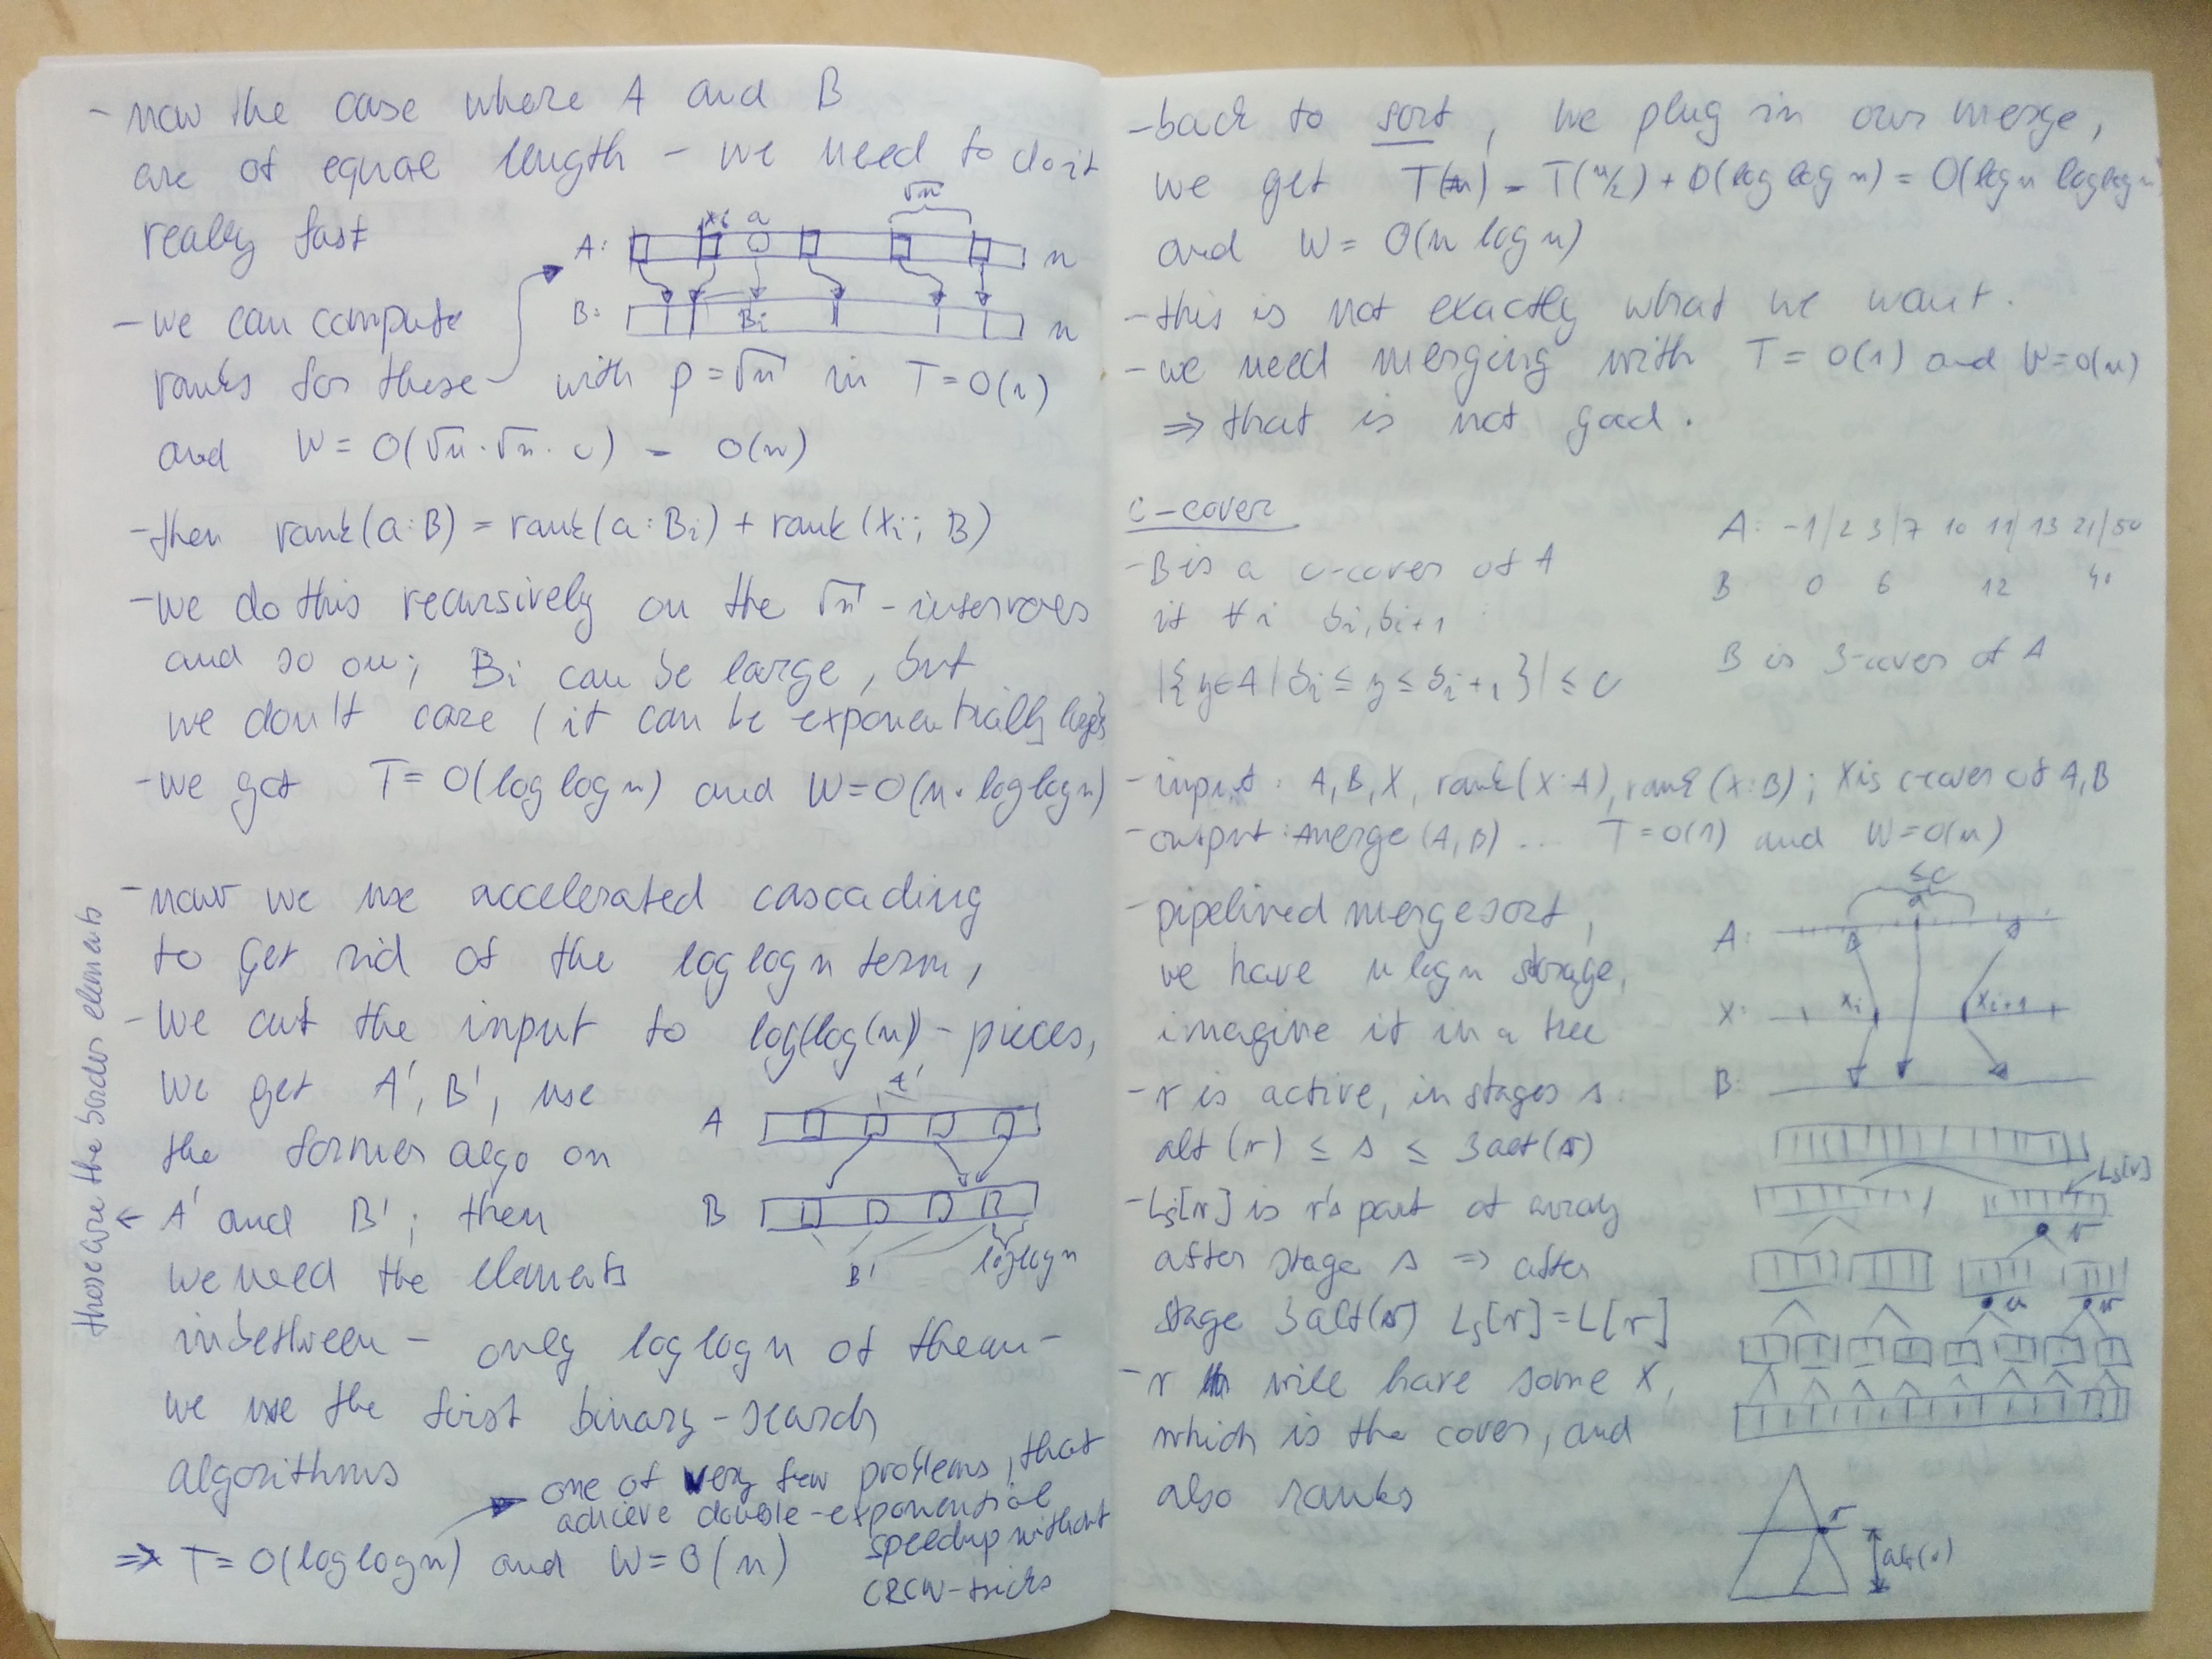 - now the case where A and B
are of equal length - we need to do it
really fast
√n
xi a
A: n
B: Bi n
- we can compute
ranks for these with p = √n in T = O(1)
and W = O(√n · √n · c) = O(n)
- then rank(a : B) = rank(a : Bi) + rank(xi ; B)
- we do this recursively on the √n - intervals
and so on; Bi can be large, but
we don't care (it can be exponentially large)
- we got T = O(log log n) and W = O(n · log log n)
- now we use accelerated cascading
to get rid of the log log n term,
- we cut the input to log(log(n)) - pieces,
we get A', B', use
the former algo on
← A' and B'; then
we need the elements
inbetween - only log log n of them -
we use the first binary - search
algorithms
those are the border elements
A'
A
B
B'
log log n
one of very few problems, that
achieve double-exponential
speedup without
CRCW-tricks
⇒ T = O(log log n) and W = O(n)
- back to sort, we plug in our merge,
we get T(n) = T(n/2) + O(log log n) = O(log n log log n)
and W = O(n log n)
- this is not exactly what we want.
- we need merging with T = O(1) and W = O(n)
⇒ that is not good.
c - cover
- B is a c-cover of A
if ∀ i bi, bi+1
|{y ∈ A | bi ≤ y ≤ bi+1}| ≤ c
A: -1 | 2 3 | 7 10 11 | 13 21 | 50
B 0 6 12 40
B is 3-cover of A
- input: A, B, X, rank(X : A), rank(X : B); X is c-cover of A, B
- output: merge(A, B) ... T = O(1) and W = O(n)
- pipelined mergesort,
we have n log n storage,
imagine it in a tree
- v is active, in stages s:
alt(v) ≤ s ≤ 3alt(v)
- Ls[v] is v's part of array
after stage s ⇒ after
stage 3alt(v) Ls[v] = L[v]
- v will have some X,
which is the cover, and
also ranks
≤c
a
A:
X: xi xi+1
B:
Ls[v]
v
u w
v
alt(v)